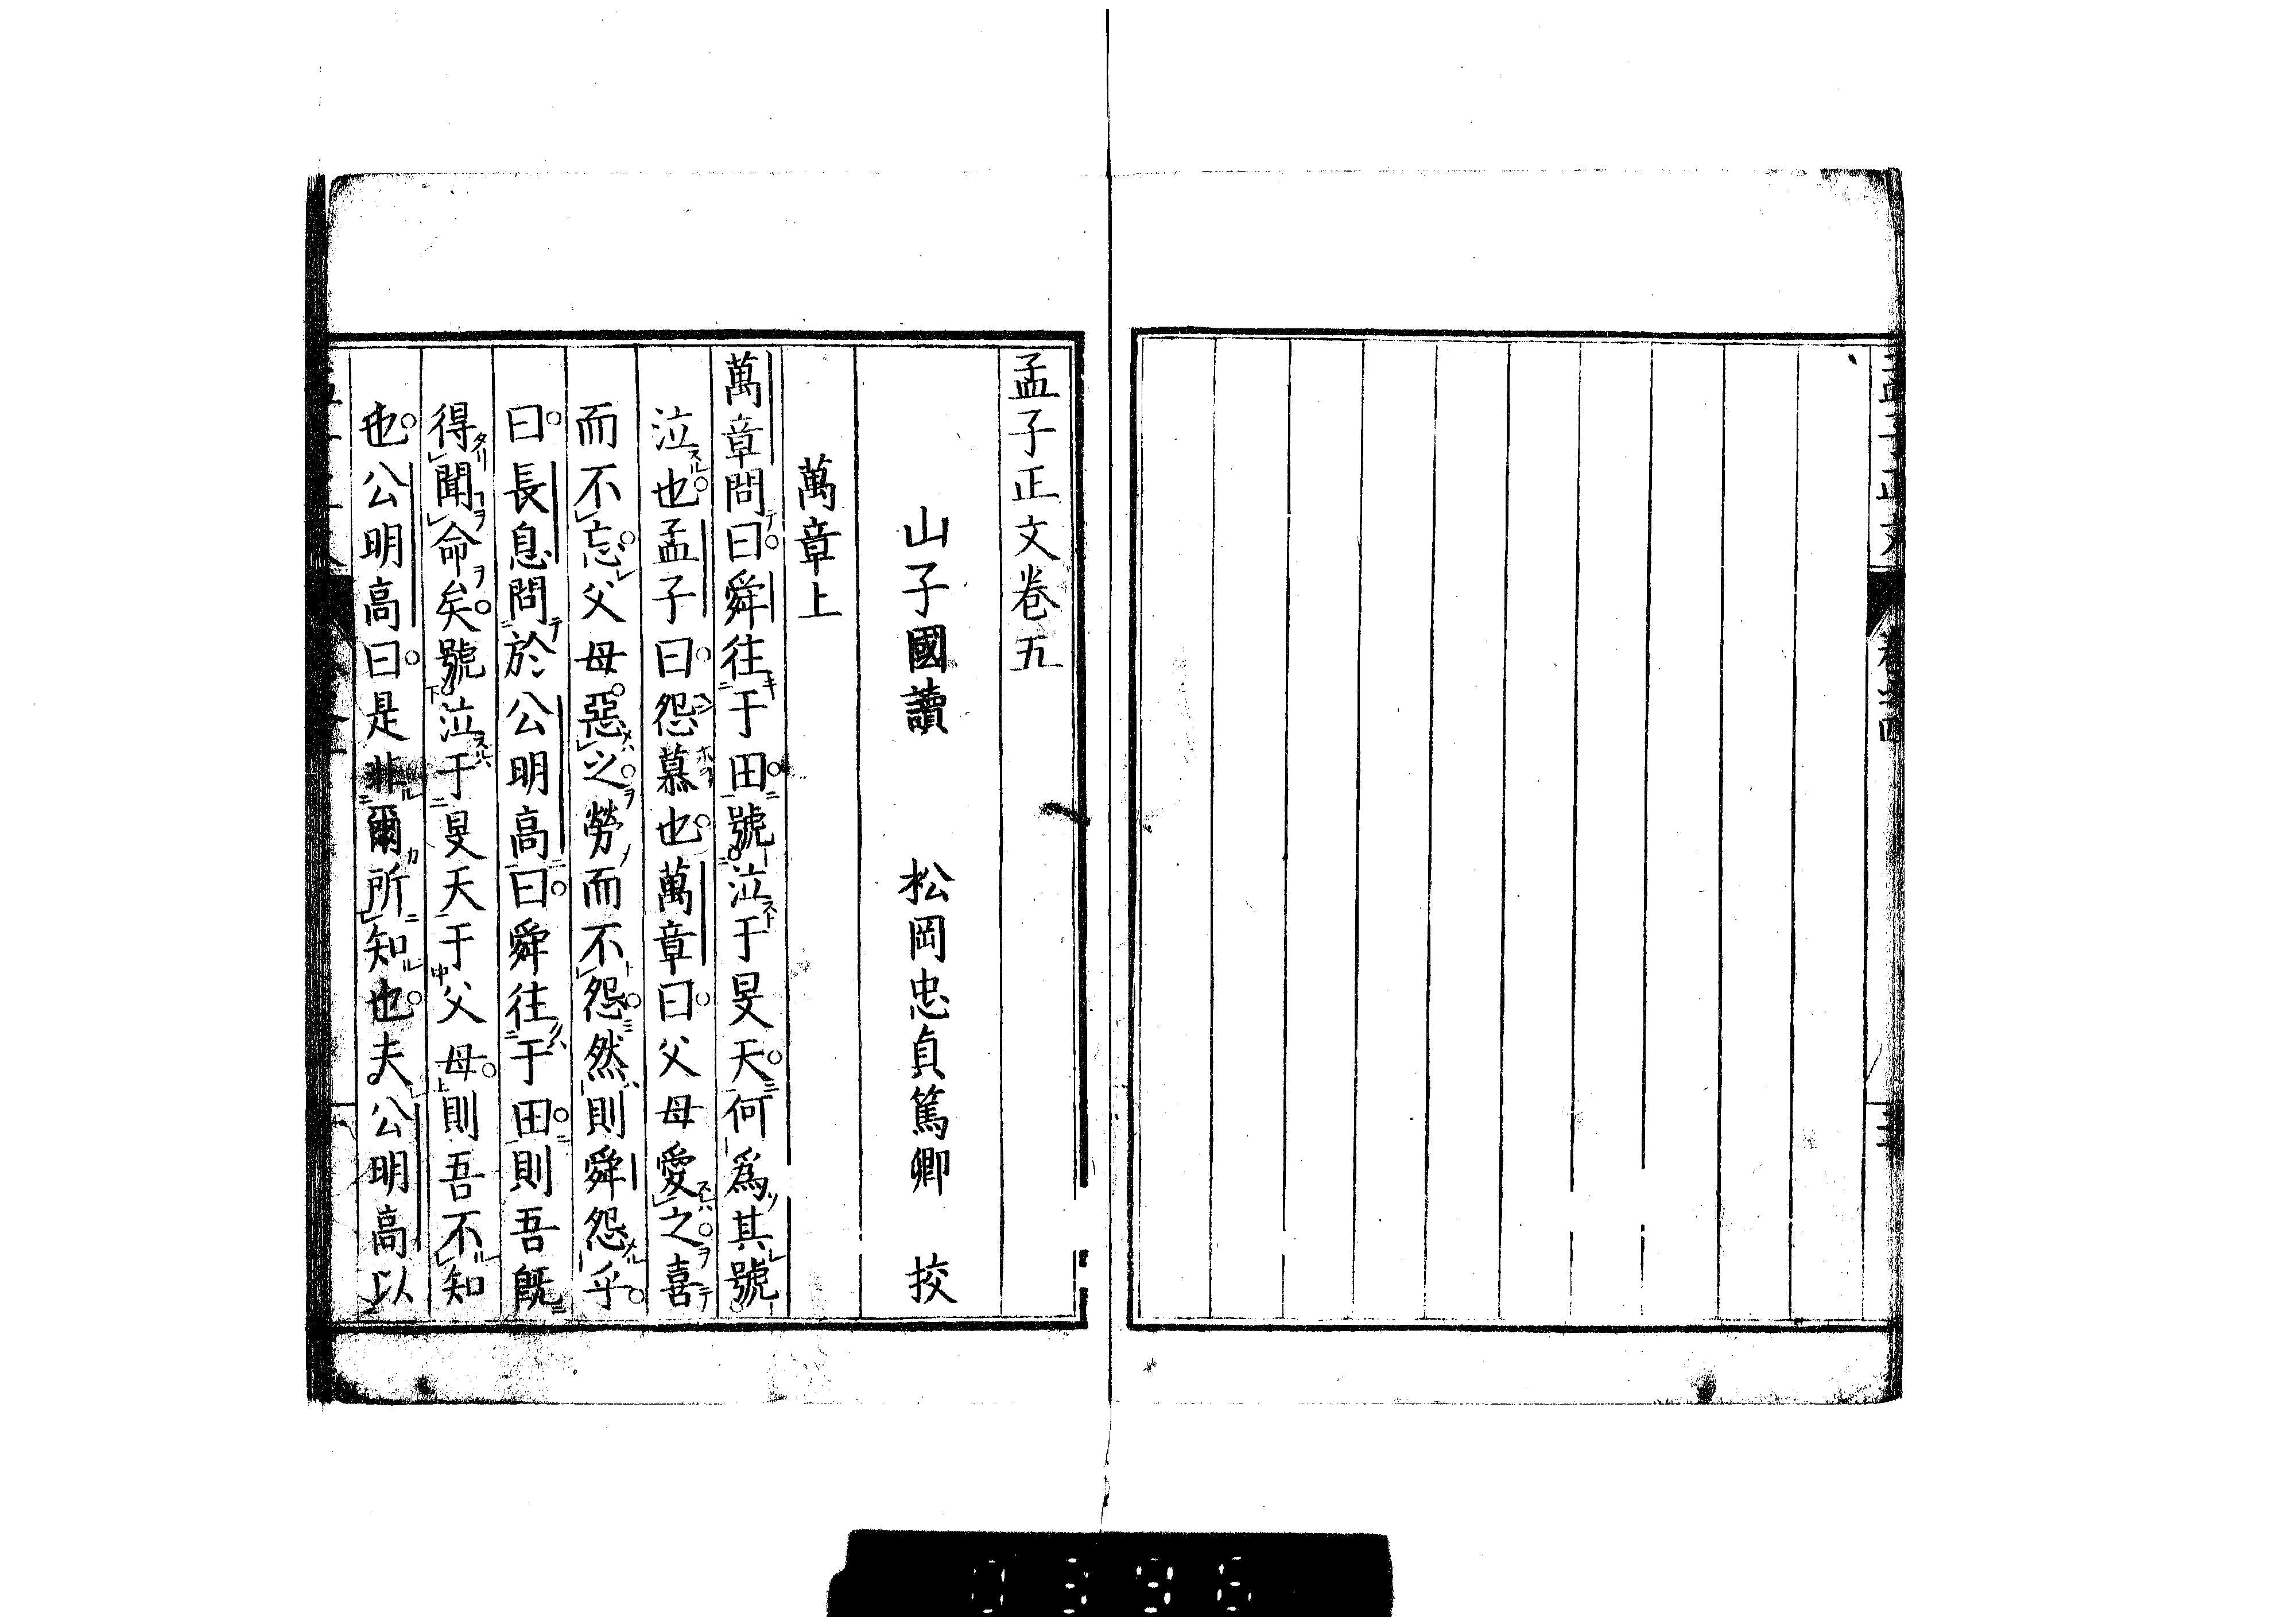 孟子正文卷五
山子國讀　松岡忠貞篤卿　挍
萬章上
萬章問曰舜往于田號泣于旻天何爲其號
泣也孟子曰怨慕也萬章曰父母愛之喜
而不忘父母惡之勞而不怨然則舜怨乎
曰長息問於公明高曰舜往于田則吾既
得聞命矣號泣于旻天于父母則吾不知
也公明高曰是非爾所知也夫公明高以
0396